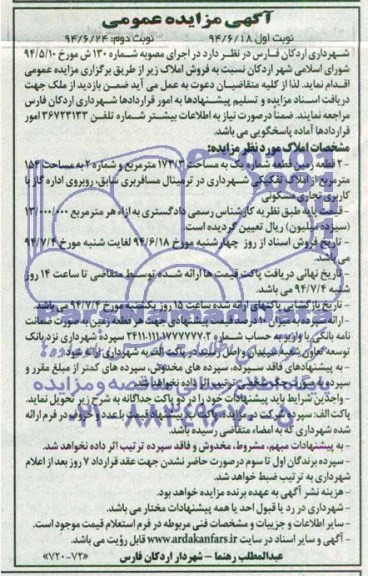 آگهی مزایده عمومی
نوبت اول ۹۴/۶/۱۸ نوبت دوم: ۹۴/۶/۲۴
شهرداری اردکان فارس در نظر دارد در اجرای مصوبه شماره ۱۳۰ ش مورخ ۹۴/۵/۱۰
شورای اسلامی شهر اردکان نسبت به فروش املاک زیر از طریق برگزاری مزایده عمومی
اقدام نماید. لذا از کلیه متقاضیان دعوت به عمل می آید ضمن بازدید از ملک جهت
دریافت اسناد مزایده و تسلیم پیشنهادها به امور قراردادها شهرداری اردکان فارس
مراجعه نمایند. ضمنا درصورت نیاز به اطلاعات بیشتر شماره تلفن ۳۶۷۲۳۱۳۳ امور
قراردادها آماده پاسخگویی می باشد.
مشخصات املاک مورد نظر مزایده:
- ۲ قطعه زمین قطعه شماره یک به مساحت ۱۷۳/۳ مترمربع و شماره ۲ به مساحت ۱۵۴
مترمربع از املاک تفکیکی شهرداری در ترمینال مسافربری سابق، روبروی اداره گاز با
کاربری تجاری مسکونی
- قیمت پایه طبق نظریه کارشناس رسمی دادگستری به ازاء هر مترمربع ۱۳/۰۰۰/۰۰۰
(سیزده میلیون) ریال تعیین گردیده است.
- تاریخ فروش اسناد از روز چهارشنبه مورخ ۹۴/۶/۱۸ لغایت شنبه مورخ ۹۴/۷/۴
می باشد.
- تاریخ نهائی دریافت پاکت قیمت ها ارائه شده توسط متقاضی تا ساعت ۱۴ روز
شنبه ۹۴/۷/۴ می باشد.
- تاریخ بازگشایی پاکتهای ارائه شده ساعت ۱۵ روز یکشنبه مورخ ۹۴/۷/۴ می باشد
- ارائه سپرده به میزان ۱۰ درصد قیمت پیشنهادی جهت هر قطعه زمین به صورت ضمانت
نامه بانکی یا واریز به حساب شماره ۲۴۱۱۰۱۱۱۰۱۷۷۷۷۷۷۰۲ سپرده شهرداری نزد بانک
توسعه تعاون شعبه سپیدان و اصل رسید در پاکت الف به شهرداری ارائه شود.
- به پیشنهادهای فاقد سپرده، سپرده های مخدوش، سپرده های کمتر از مبلغ مقرر و
سپرده به صورت چک شخصی ترتیب اثر داده نخواهد شد.
- واجدین شرایط باید پیشنهادات خود را در دو پاکت جداگانه به شرح زیر تحویل نماید.
پاکت الف: سپرده شرکت در مزایده. پاکت ب: پیشنهاد قیمت با عدد و حروف در فرم ارائه
شده شهرداری که به امضاء متقاضی رسیده باشد.
- به پیشنهادات مبهم، مشروط، مخدوش و فاقد سپرده ترتیب اثر داده نخواهد شد.
- سپرده برندگان اول تا سوم درصورت حاضر نشدن جهت عقد قرارداد ۷ روز بعد از اعلام
شهرداری به ترتیب ضبط خواهد شد.
- هزینه نشر آگهی به عهده برنده مزایده خواهد بود.
- شهرداری در رد یا قبول احد یا همه پیشنهادات مختار می باشد.
- سایر اطلاعات و جزییات و مشخصات فنی مربوطه در فرم استعلام قیمت موجود است.
- آگهی و سایر اسناد در سایت www.ardakanfars.ir قابل رؤیت می باشد.
عبدالمطلب رهنما - شهردار اردکان فارس «۷۲۰-۷۲»
ParsNamadData
۰۲۱-۸۸۳۴۹۶۷۰-۵